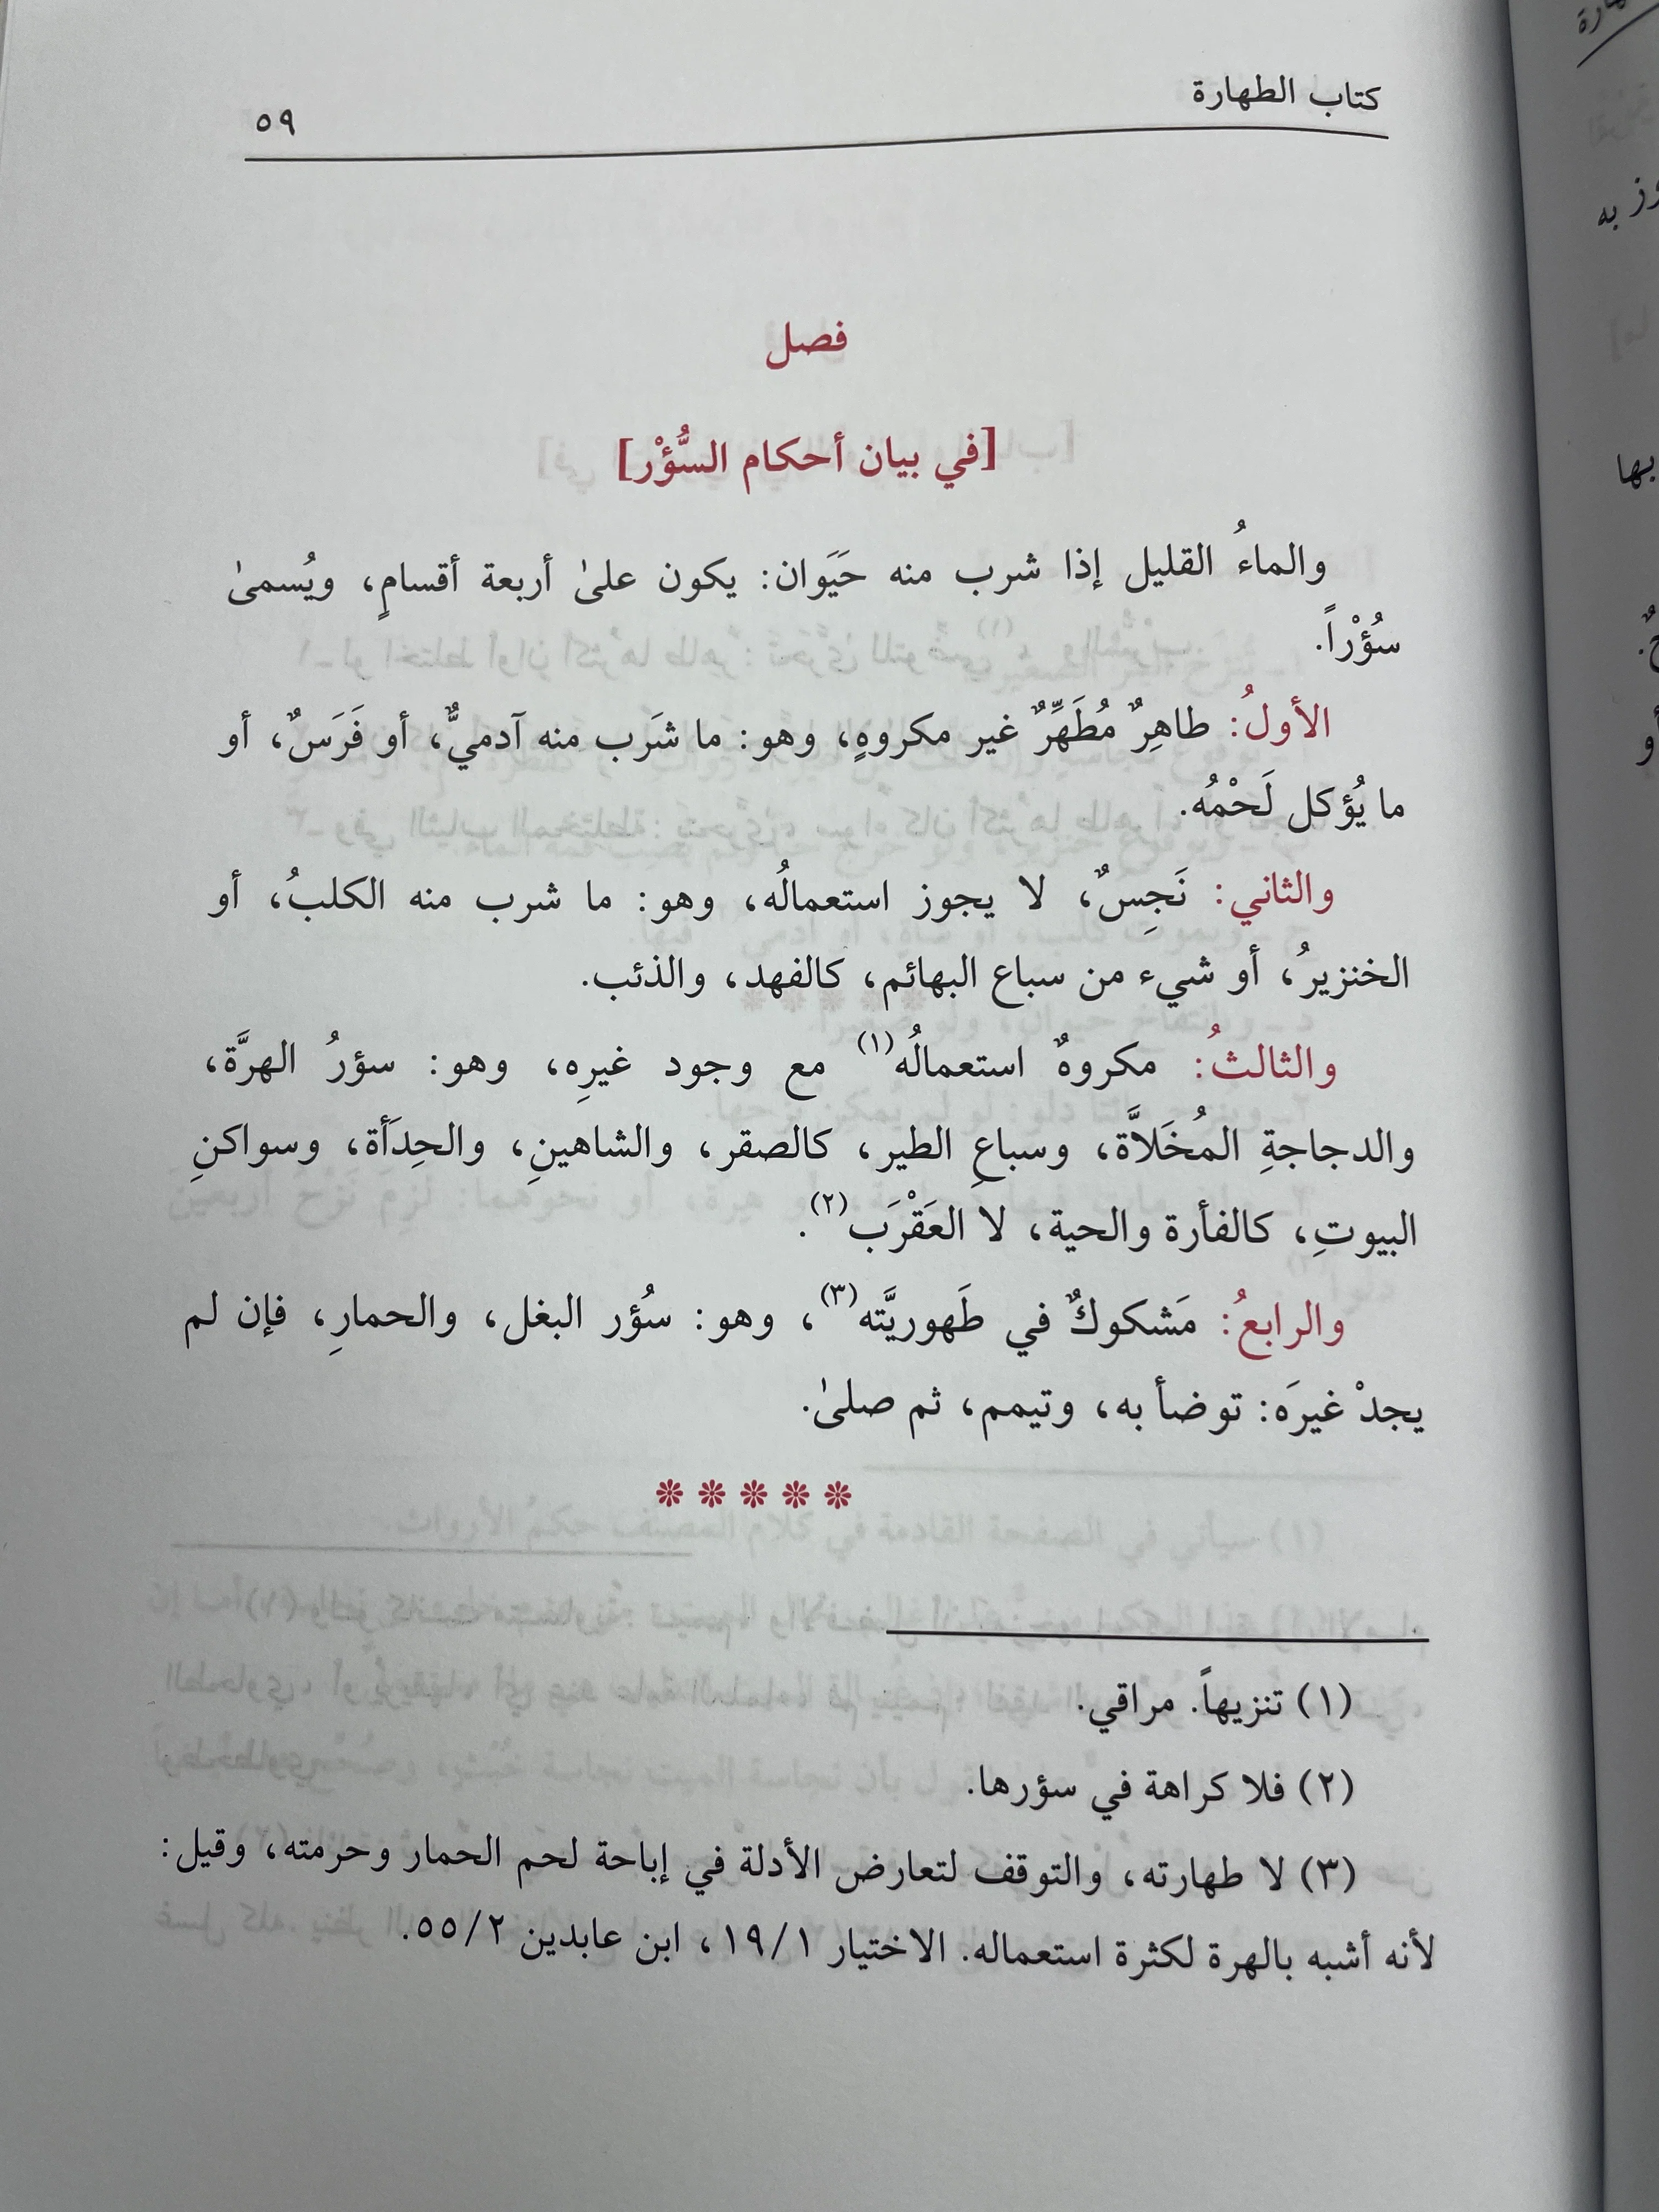 كتاب الطهارة ٥٩
فصل
[في بيان أحكام السُّؤْر]
والماءُ القليل إذا شرب منه حَيَوان: يكون علىٰ أربعة أقسامٍ، ويُسمىٰ
سُؤْراً.
الأولُ: طاهِرٌ مُطَهِّرٌ غير مكروهٍ، وهو: ما شَرَب منه آدميٌّ، أو فَرَسٌ، أو
ما يُؤكل لَحْمُه.
والثاني: نَجِسٌ، لا يجوز استعمالُه، وهو: ما شرب منه الكلبُ، أو
الخنزيرُ، أو شيء من سباع البهائم، كالفهد، والذئب.
والثالثُ: مكروهٌ استعمالُه(١) مع وجود غيرِه، وهو: سؤرُ الهرَّة،
والدجاجةِ المُخَلاَّة، وسباعِ الطير، كالصقر، والشاهينِ، والحِدَأة، وسواكنِ
البيوتِ، كالفأرة والحية، لا العَقْرَب(٢).
والرابعُ: مَشكوكٌ في طَهوريَّته(٣)، وهو: سُؤر البغل، والحمارِ، فإن لم
يجدْ غيرَه: توضأ به، وتيمم، ثم صلىٰ.
(١) تنزيهاً. مراقي.
(٢) فلا كراهة في سؤرها.
(٣) لا طهارته، والتوقف لتعارض الأدلة في إباحة لحم الحمار وحرمته، وقيل:
لأنه أشبه بالهرة لكثرة استعماله. الاختيار ١٩/١، ابن عابدين ٥٥/٢.
وز به
بها
أو